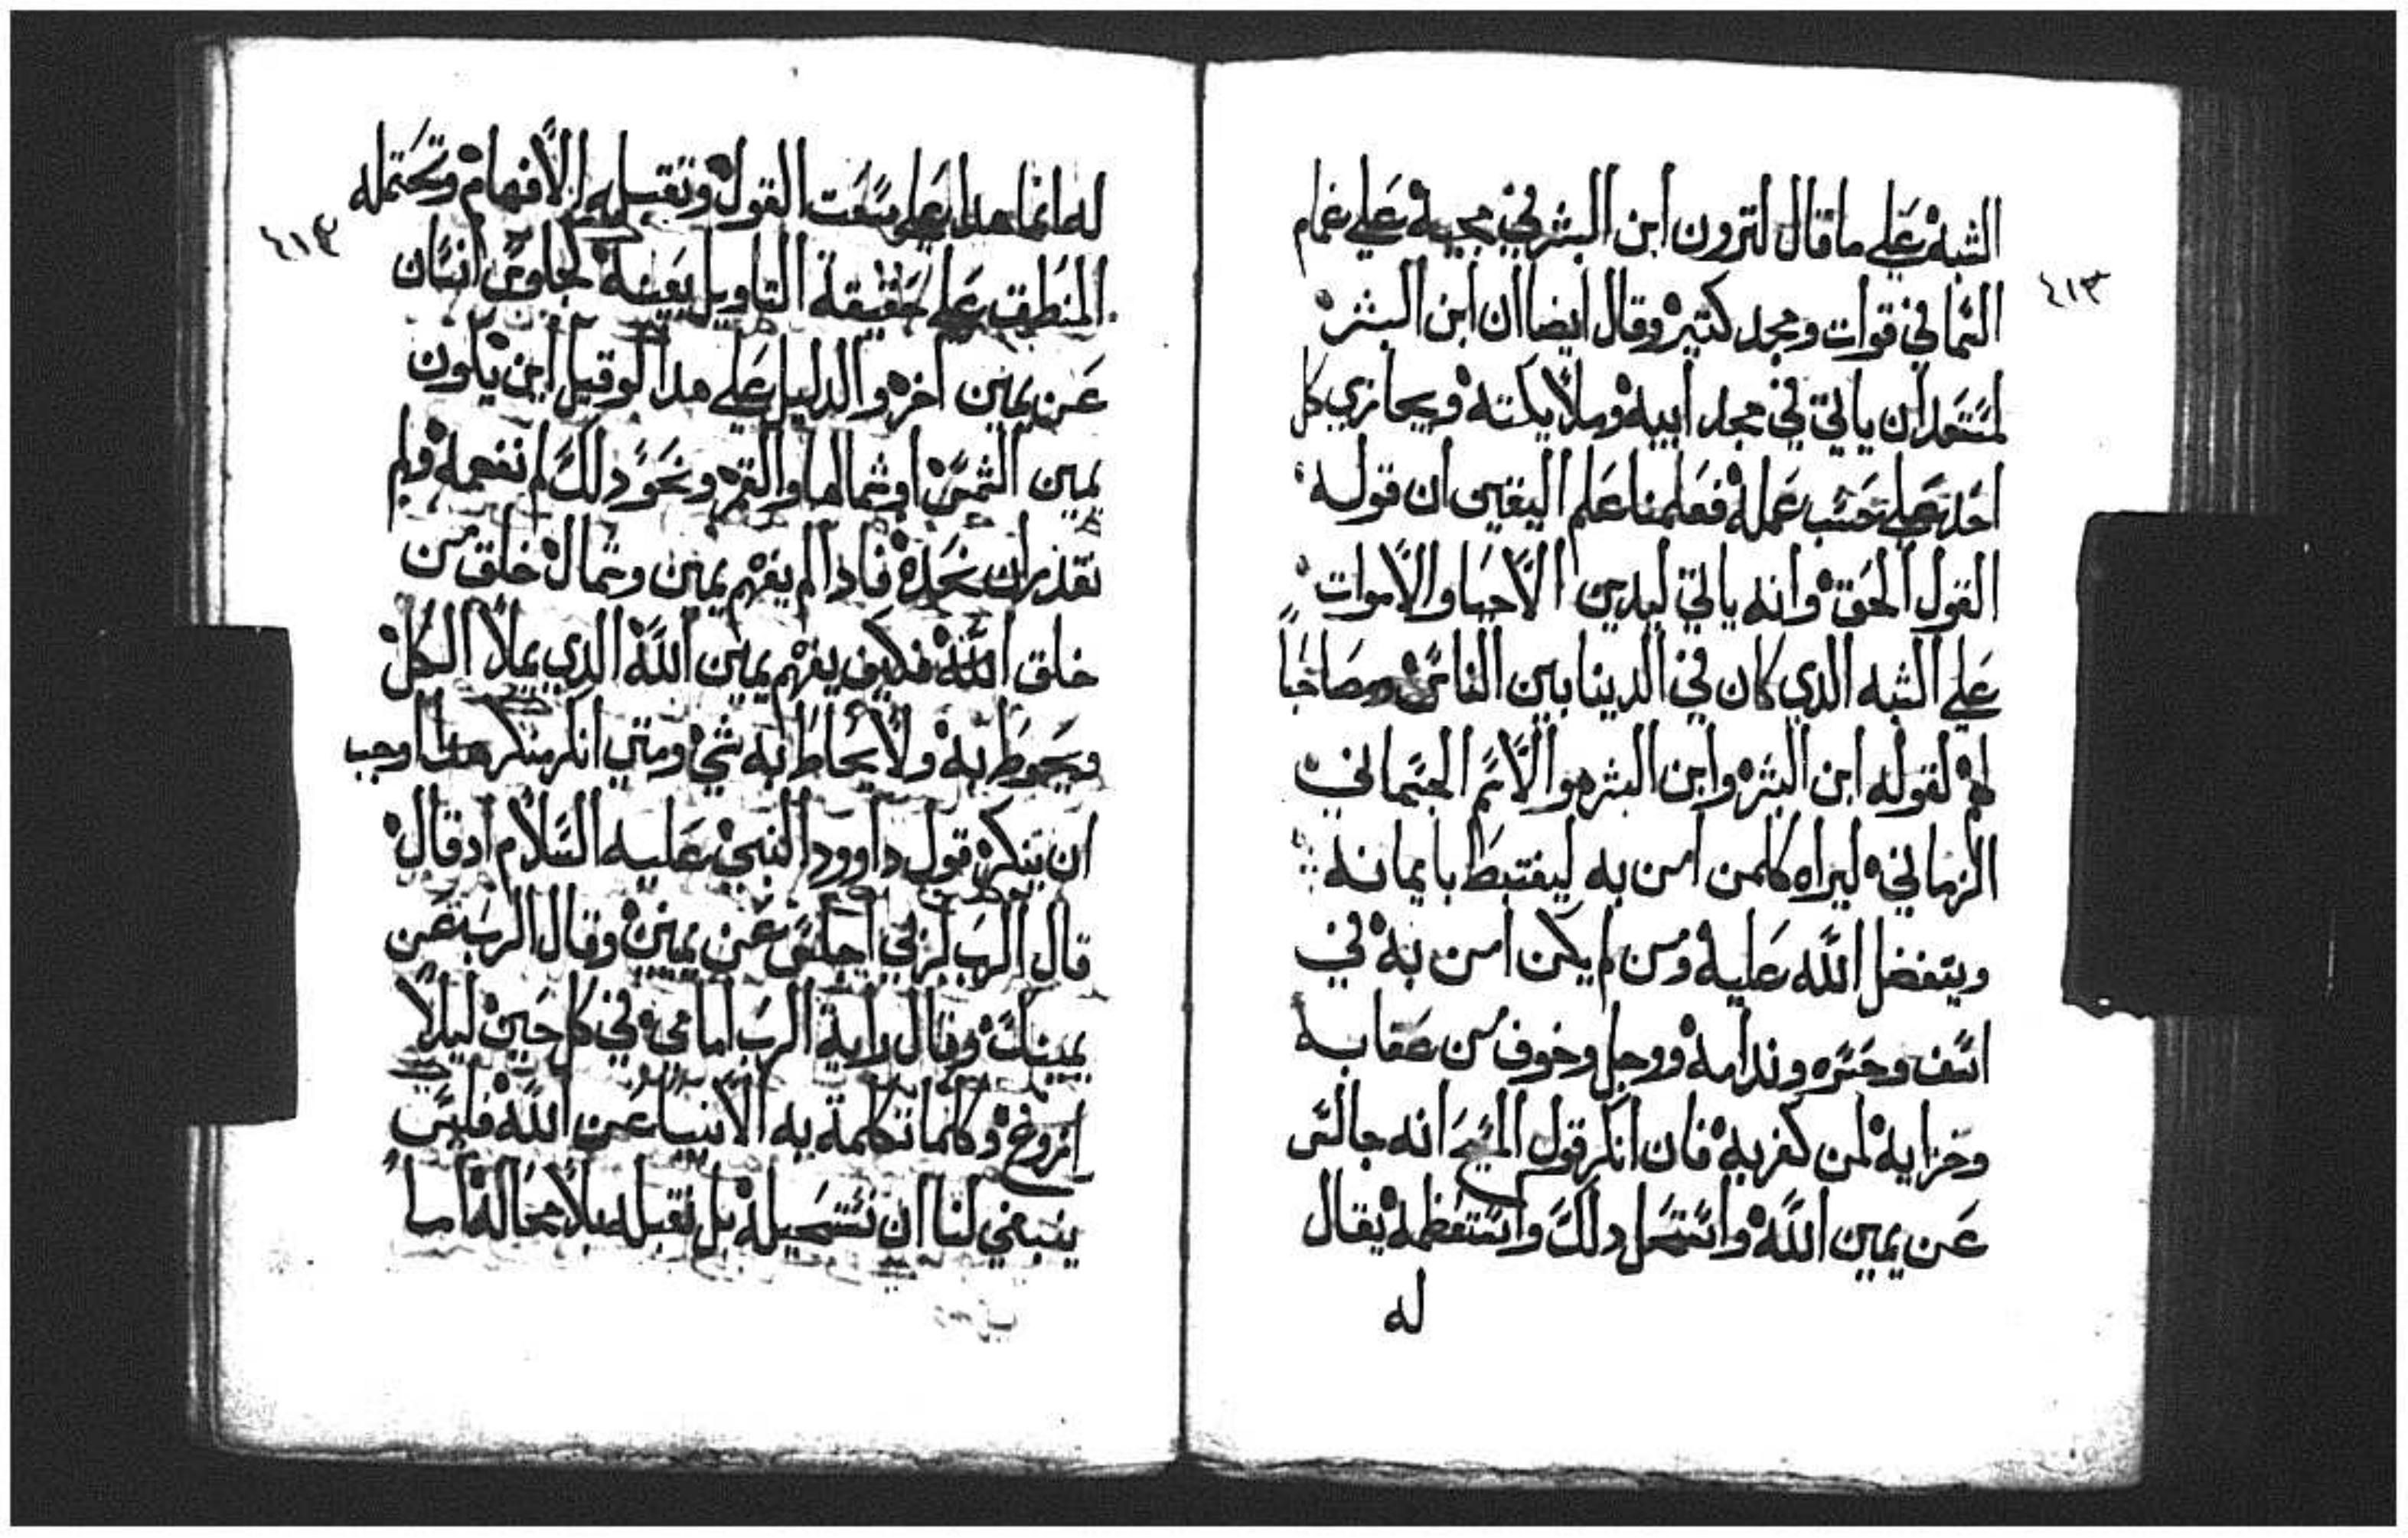 ٤١٣
الشبه على ما قال لترون ابن البشر في مجيه على غمام
السما في قوات ومجد كتير وقال ايضا ان ابن البشر
لمستعد ان ياتي في مجد ابيه وملايكته ويجازي كل
احد على حسب عمله فعلمنا علم اليقين ان قوله
القول الحق وانه ياتي ليدين الاحيا والاموات
على الشبه الدي كان في الدنيا بين الناس ومصاحبا
له لقوله ابن البشر وابن البشر هو الاسم الجسماني
الزماني ليراه كلمن امن به ليغتبط بايمانه
ويتفضل الله عليه ومن لم يكن امن به في
اسف وحسره وندامة ووجل وخوف من عقابه
وخزاية لمن كفر به فان انكر قول المسيح انه جالس
عن يمين الله واستحل دلك واستعظمه يقال
له
٤١٣
له انما هدا على القول وتقبله الافهام وتحتمله
المنطق على حقيقة التاويل بعينه لجلوس انسان
عن يمين اخر والدليل على هدا لو قيل اين يكون
يمين الشمس او شمالها والقمر ونحو دلك لم نفهمه ولم
نقدر ان نجده فادا لم يفهم يمين وشمال خلق من
خلق الله فكيف يفهم يمين الله الدي يملا الكل
ويحوط به ولا يحاط به شي ومتي انكر منكر هدا اوجب
ان ينكر قول داوود النبي عليه السلام ادقال
قال الرب لربي اجلس عن يميني وقال الرب عن
يمينك وقال راية الرب امامي في كل حين ليلا
ازوغ وكلما تكلمة به الانبيا عن الله فليس
ينبغي لنا ان نستحيله بل نقبله بلا محاله اما